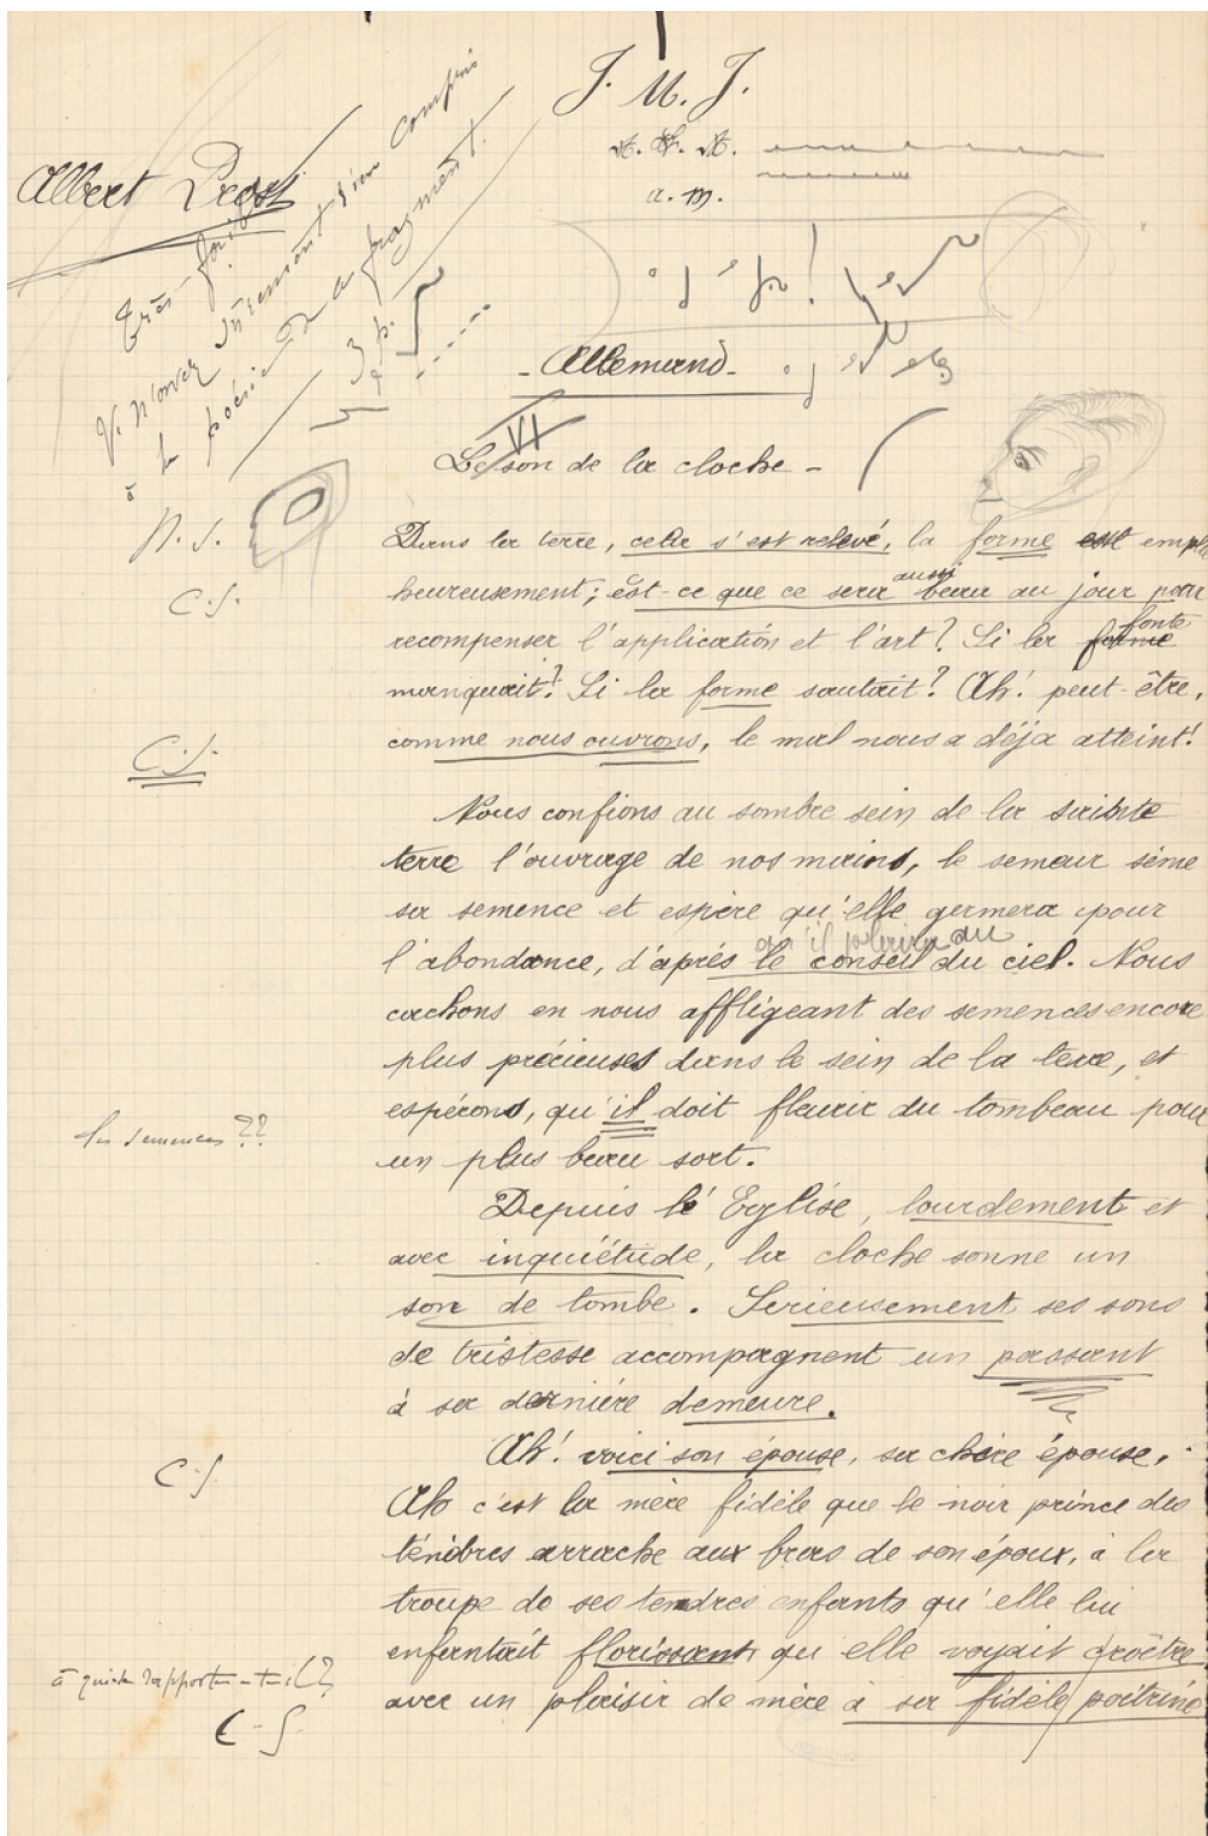 J. M. J.
Albert Prost
a. m.
Très faible
V. n'avez sûrement rien compris
à la poésie de ce fragment.
- Allemand -
VI
Le son de la cloche -
N. S.
Dans la terre, cela s'est relevé, la forme est emplie
C. S.
aussi
heureusement ; est-ce que ce sera beau au jour pour
fonte
recompenser l'application et l'art ? Si la forme
manquait ? Si la forme sautait ? Ah ! peut-être,
comme nous ouvrons, le mal nous a déja atteint !
C. S.
Nous confions au sombre sein de la sainte
terre l'ouvrage de nos mains, le semeur sème
sa semence et espère qu'elle germera pour
qu'il plaira au
l'abondance, d'après le conseil du ciel. Nous
cachons en nous affligeant des semences encore
plus précieuses dans le sein de la terre, et
espérons, qu'il doit fleurir du tombeau pour
les semences ??
un plus beau sort.
Depuis l'Eglise, lourdement et
avec inquiétude, la cloche sonne un
son de tombe. Serieusement ses sons
de tristesse accompagnent un passant
à sa dernière demeure.
Ah ! voici son épouse, sa chère épouse,
C. S.
Ah c'est la mère fidèle que le noir prince des
ténèbres arrache aux bras de son époux, à la
troupe de ses tendres enfants qu'elle lui
enfantait florissant, qu'elle voyait croître
à qui se rapporte-t-il ?
avec un plaisir de mère à sa fidèle poitrine
C. S.